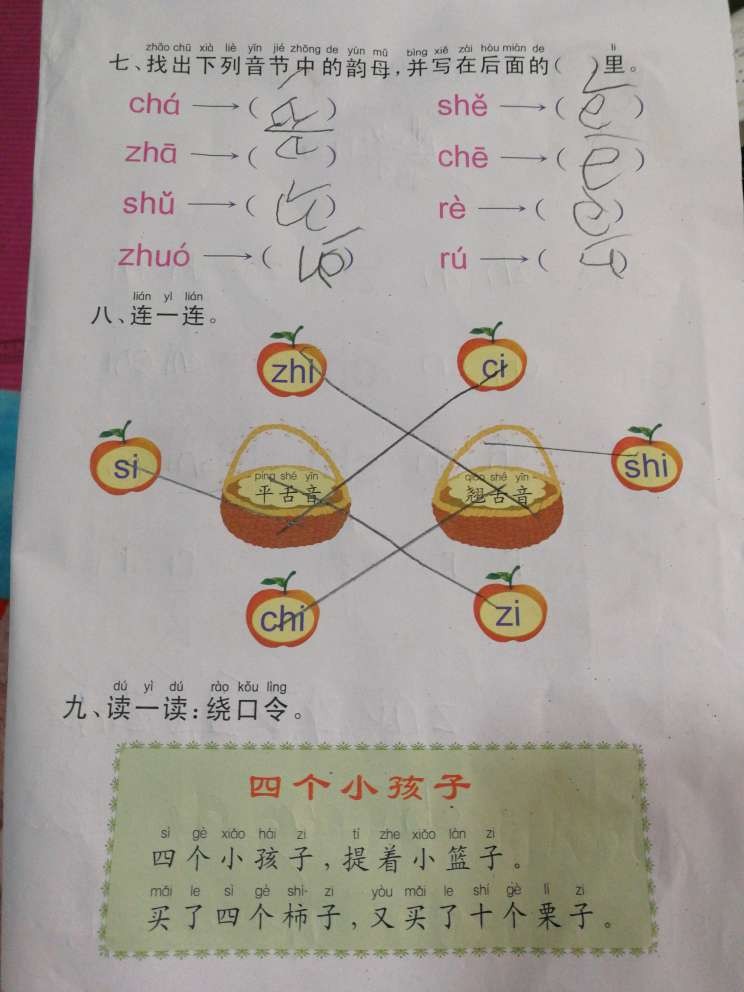 zhǎo chū xià liè yīn jié zhōng de yùn mǔ bìng xiě zài hòu miàn de lǐ
七、找出下列音节中的韵母,并写在后面的( )里。
chá →( ) shě →( )
zhā →( ) chē →( )
shǔ →( ) rè →( )
zhuó →( ) rú →( )
lián yì lián
八、连一连。
zhi ci
si shi
píng shé yīn qiào shé yīn
平舌音 翘舌音
chi zi
dú yì dú rào kǒu lìng
九、读一读:绕口令。
四个小孩子
sì gè xiǎo hái zi tí zhe xiǎo lán zi
四个小孩子,提着小篮子。
mǎi le sì gè shì zi yòu mǎi le shí gè lì zi
买了四个柿子,又买了十个栗子。